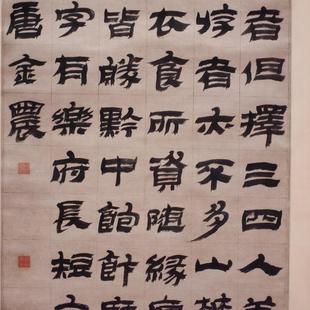 者但擇三四人
悖者亦不多山
衣食所資隨緣
皆勝黔中飽飫
字有樂府長短
唐金農